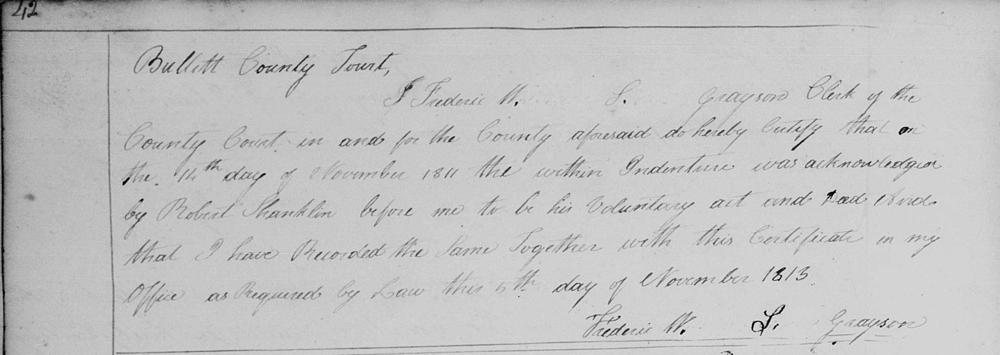 42
Bullitt County Court,
I Frederic W. S. Grayson Clerk of the
County Court in and for the County aforesaid do hereby Certify that on
the 14th day of November 1811 the within Indenture was acknowledged
by Robert Shanklin before me to be his Voluntary act and deed And
that I have Recorded the Same Together with this Certificate in my
Office as Required by Law this 5th day of November 1813.
Frederic W. S. Grayson